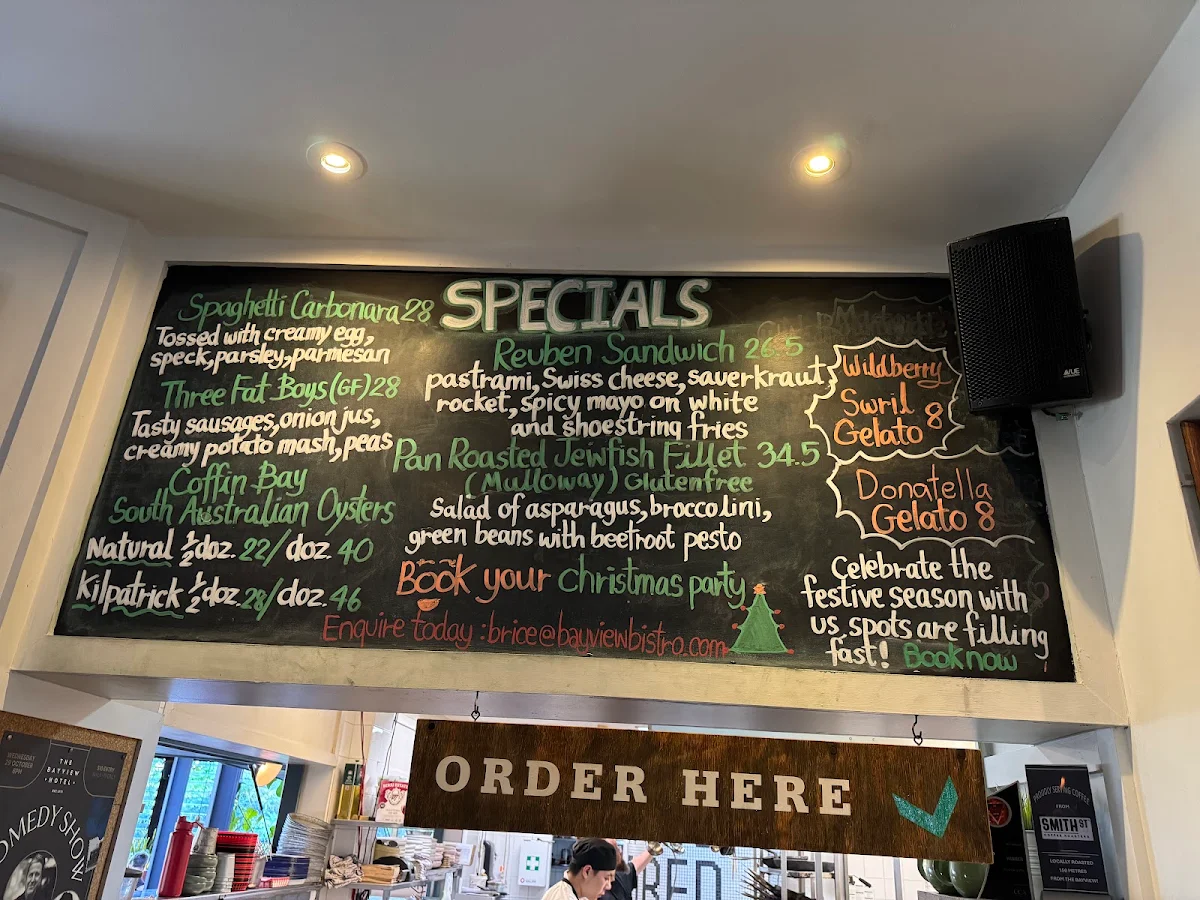 SPECIALS
Spaghetti Carbonara 28
Tossed with creamy egg,
speck, parsley, parmesan
Three Fat Boys (GF) 28
Tasty sausages, onion jus,
creamy potato mash, peas
Coffin Bay
South Australian Oysters
Natural ½ doz. 22/ doz. 40
Kilpatrick ½ doz. 28/ doz. 46
Reuben Sandwich 26.5
pastrami, Swiss cheese, sauerkraut,
rocket, spicy mayo on white
and shoestring fries
Pan Roasted Jewfish Fillet 34.5
(Mulloway) Glutenfree
Salad of asparagus, broccolini,
green beans with beetroot pesto
Book your christmas party
Enquire today : brice@bayviewbistro.com
Wildberry
Swril 8
Gelato
Donatella
Gelato 8
Celebrate the
festive season with
us, spots are filling
fast! Book now
ORDER HERE
WEDNESDAY
29 OCTOBER
8PM
THE
BAYVIEW
HOTEL
OMEDY SHOW
PROUDLY SERVING COFFEE
FROM
SMITH ST
LOCALLY ROASTED
100 METRES
FROM THE BAYVIEW!
RED